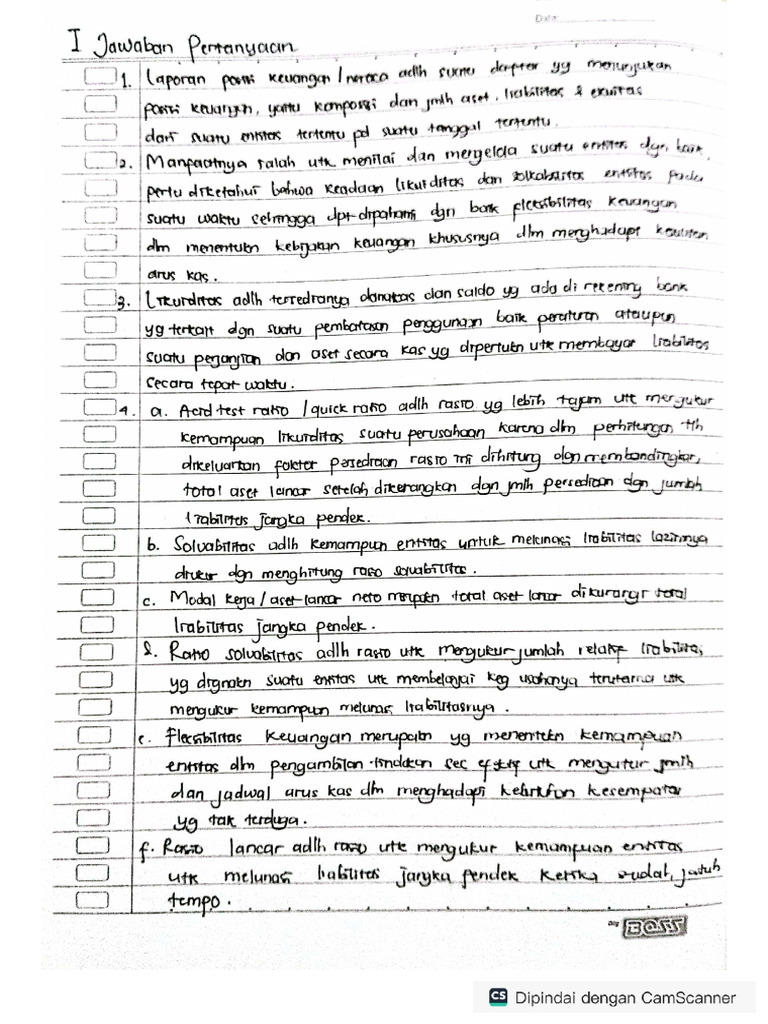 Date:
I Jawaban Pertanyaan
1. Laporan posisi keuangan / neraca adlh suatu daptar yg menunjukan
posisi keuangan, yaitu komposisi dan jmlh aset, liabilitas & ekuitas
dari suatu entitas tertentu pd suatu tanggal tertentu.
2. Manpaatnya ialah utk menilai dan mengelola suatu entitas dgn baik,
perlu diketahui bahwa keadaan likuiditas dan solvabilitas entitas pada
suatu waktu sehingga dpt dipahami dgn baik fleksibilitas keuangan
dlm menentukn kebijakan keuangan khususnya dlm menghadapi kesulitan
arus kas.
3. Likuiditas adlh tersedianya dana kas dan saldo yg ada di rekening bank
yg terkait dgn suatu pembatasan penggunaan baik peraturan ataupun
suatu perjanjian dan aset secara kas yg dipertukn utk membayar liabilitas
secara tepat waktu.
4. a. Acid test ratio / quick ratio adlh rasio yg lebih tajam utk mengukur
kemampuan likuiditas suatu perusahaan karena dlm perhitungan tlh
dikeluarkan faktor persediaan rasio ini dihitung dgn membandingkan
total aset lancar setelah dikurangkan dgn jmlh persediaan dgn jumlah
liabilitas jangka pendek.
b. Solvabilitas adlh kemampun entitas untuk melunasi liabilitas lazimnya
diukur dgn menghitung rasio solvabilitas.
c. Modal kerja / aset lancar neto merupakn total aset lancar dikurangi total
liabilitas jangka pendek.
d. Ratio solvabilitas adlh rasio utk mengukur jumlah relatif liabilitas
yg digunakn suatu entitas utk membelanjai keg usahanya terutama utk
mengukur kemampun melunasi liabilitasnya.
e. Fleksibilitas keuangan merupakn yg menentukn kemampuan
entitas dlm pengambilan tindakan sec efektif utk mengatur jmlh
dan jadwal arus kas dlm menghadapi kesempatan
yg tak terduga.
f. Rasio lancar adlh rasio utk mengukur kemampuan entitas
utk melunasi liabilitas jangka pendek ketika sudah jatuh
tempo.
BOSS
CS Dipindai dengan CamScanner